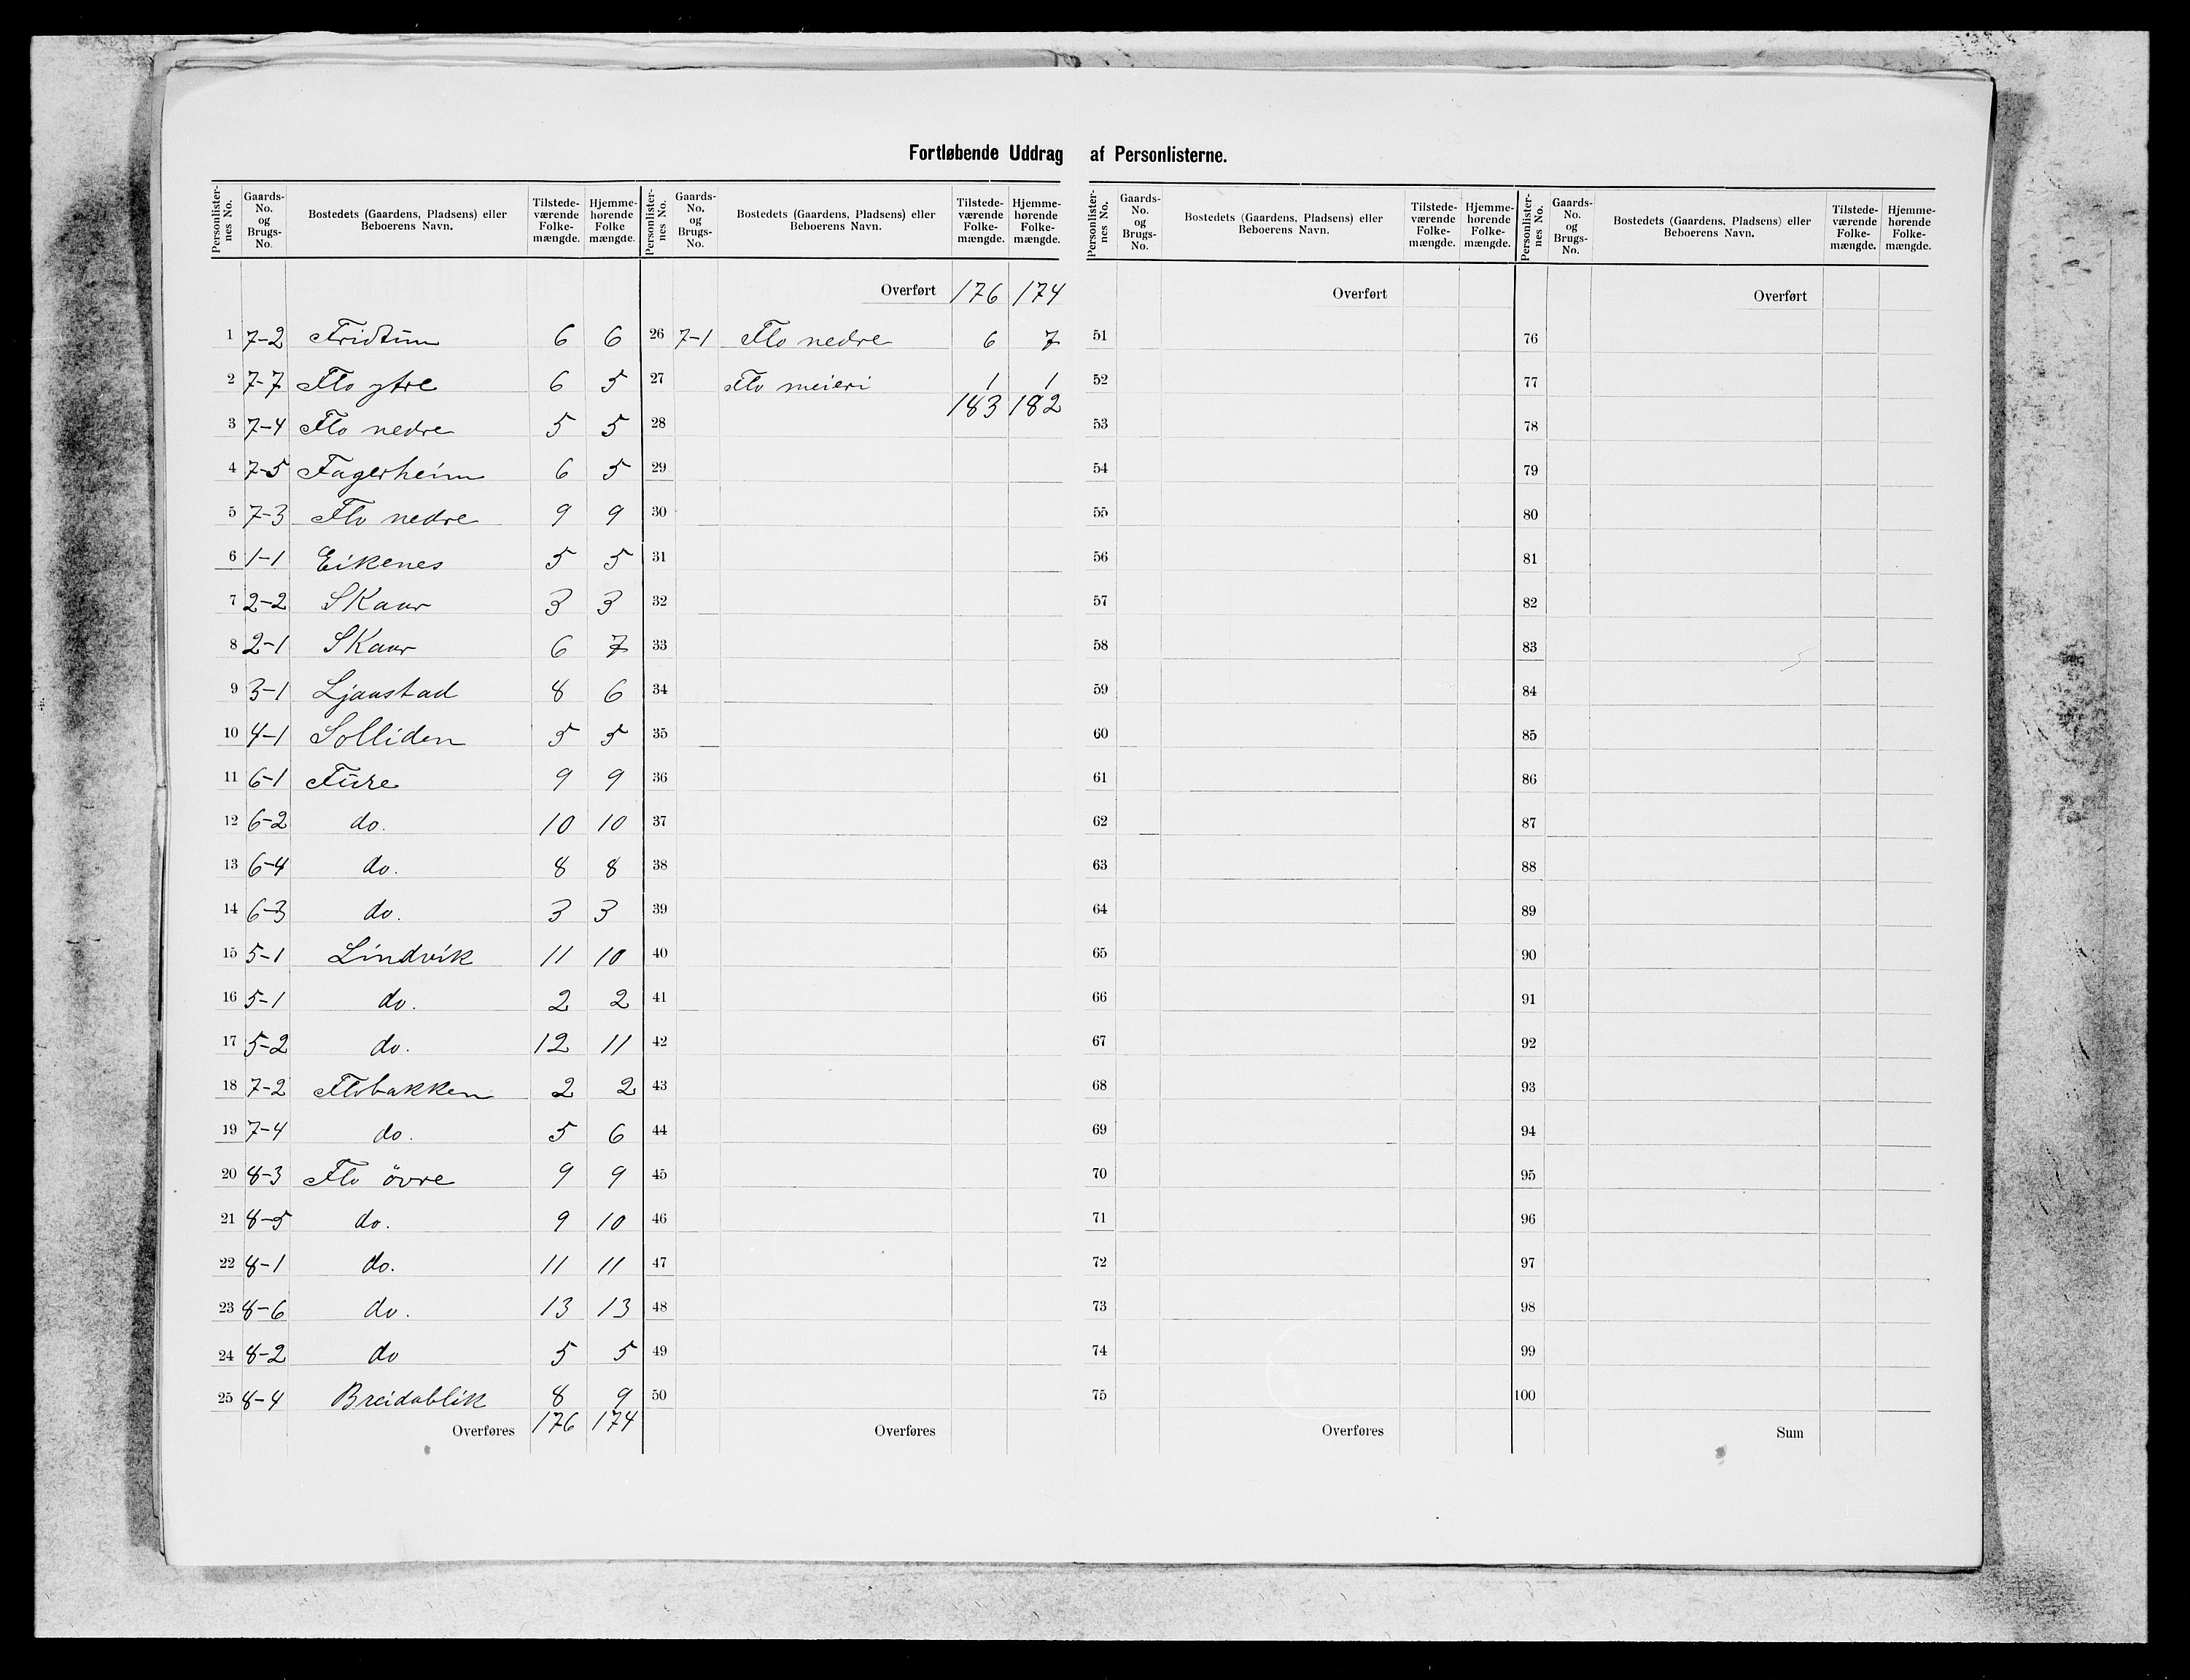 Fortløbende Uddrag af Personlisterne.
Personlister-nes No. | Gaards-No. og Brugs-No. | Bostedets (Gaardens, Pladsens) eller Beboerens Navn. | Tilstede-værende Folke-mængde. | Hjemme-hørende Folke mængde.
1 7-2 Fridtun 6 6
2 7-7 Flo ytre 6 5
3 7-4 Flo nedre 5 5
4 7-5 Fagerheim 6 5
5 7-3 Flo nedre 9 9
6 1-1 Eikenes 5 5
7 2-2 Skaar 3 3
8 2-1 Skaar 6 7
9 3-1 Ljaastad 8 6
10 4-1 Solliden 5 5
11 6-1 Fure 9 9
12 6-2 do. 10 10
13 6-4 do. 8 8
14 6-3 do. 3 3
15 5-1 Lindvik 11 10
16 5-1 do. 2 2
17 5-2 do. 12 11
18 7-2 Flobakken 2 2
19 7-4 do. 5 6
20 8-3 Flo övre 9 9
21 8-5 do. 9 10
22 8-1 do. 11 11
23 8-6 do. 13 13
24 8-2 do 5 5
25 8-4 Breidablik 8 9
Overføres 176 174
Personlister-nes No. | Gaards-No. og Brugs-No. | Bostedets (Gaardens, Pladsens) eller Beboerens Navn. | Tilstede-værende Folke-mængde. | Hjemme-hørende Folke-mængde.
Overført 176 174
26 7-1 Flo nedre 6 7
27 Flo meieri 1 1
183 182
28
29
30
31
32
33
34
35
36
37
38
39
40
41
42
43
44
45
46
47
48
49
50
Overføres
Personlister-nes No. | Gaards-No. og Brugs-No. | Bostedets (Gaardens, Pladsens) eller Beboerens Navn. | Tilstede-værende Folke-mængde. | Hjemme-hørende Folke-mængde.
Overført
51
52
53
54
55
56
57
58
59
60
61
62
63
64
65
66
67
68
69
70
71
72
73
74
75
Overføres
Personlister-nes No. | Gaards-No. og Brugs-No. | Bostedets (Gaardens, Pladsens) eller Beboerens Navn. | Tilstede-værende Folke-mængde. | Hjemme-hørende Folke-mængde.
Overført
76
77
78
79
80
81
82
83
84
85
86
87
88
89
90
91
92
93
94
95
96
97
98
99
100
Sum